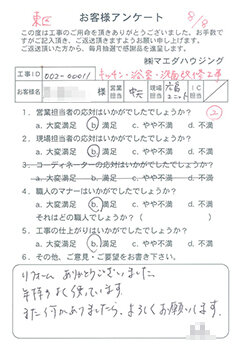 東区
8/8
お客様アンケート
この度は工事のご用命を頂きありがとうございました。お手数で
すがご記入頂き、ご返送頂きますようお願い申し上げます。
ご返送頂いた方から、毎月抽選で感謝品を送呈します。
㈱マエダハウジング
工事ID 002-00011 キッチン・浴室・洗面改修工事
お客様名 様 営業担当 現場担当 広島 ユニット IC担当
1. 営業担当者の応対はいかがでしたでしょうか? ②
a. 大変満足 b. 満足 c. やや不満 d. 不満
2. 現場担当者の応対はいかがでしたでしょうか?
a. 大変満足 b. 満足 c. やや不満 d. 不満
3. コーディネーターの応対はいかがでしたでしょうか?
a. 大変満足 b. 満足 c. やや不満 d. 不満
4. 職人のマナーはいかがでしたでしょうか?
a. 大変満足 b. 満足 c. やや不満 d. 不満
それはどの職人でしょうか? ( )
5. 工事の仕上がりはいかがでしたでしょうか?
a. 大変満足 b. 満足 c. やや不満 d. 不満
6. その他、ご意見・ご要望をお書き下さい。
リフォーム ありがとうございました。
気持ちよく使っています。
また何かありましたら、よろしくお願いします。